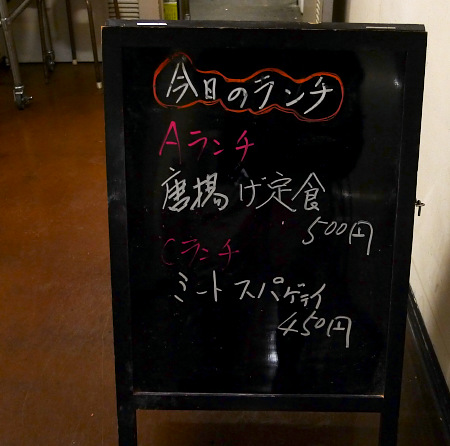 今日のランチ
Aランチ
唐揚げ定食
500円
Cランチ
ミートスパゲティ
450円